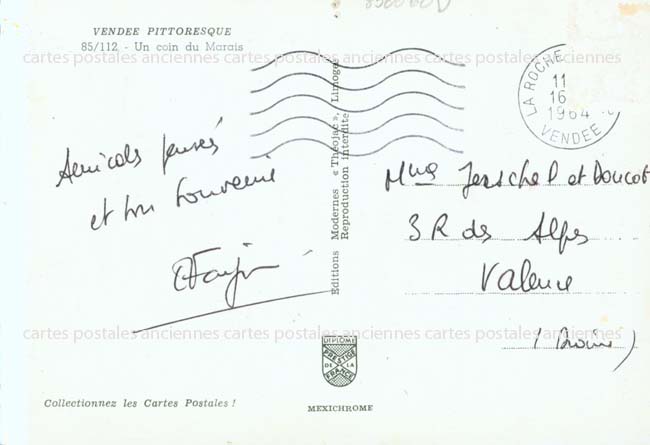 VENDEE PITTORESQUE
85/112 - Un coin du Marais
cartes postales anciennes cartes postales anciennes cartes postales anciennes
LA ROCHE
11
16
1964
VENDEE
Amicales pensées
et bon souvenir
Editions Modernes « Théojac », Limoges
Reproduction interdite
et Doucot
3 R des Alpes
Valence
(Drôme)
cartes postales anciennes cartes postales anciennes cartes postales anciennes
DIPLOME
PRESTIGE
DE LA
FRANCE
Collectionnez les Cartes Postales !
MEXICHROME